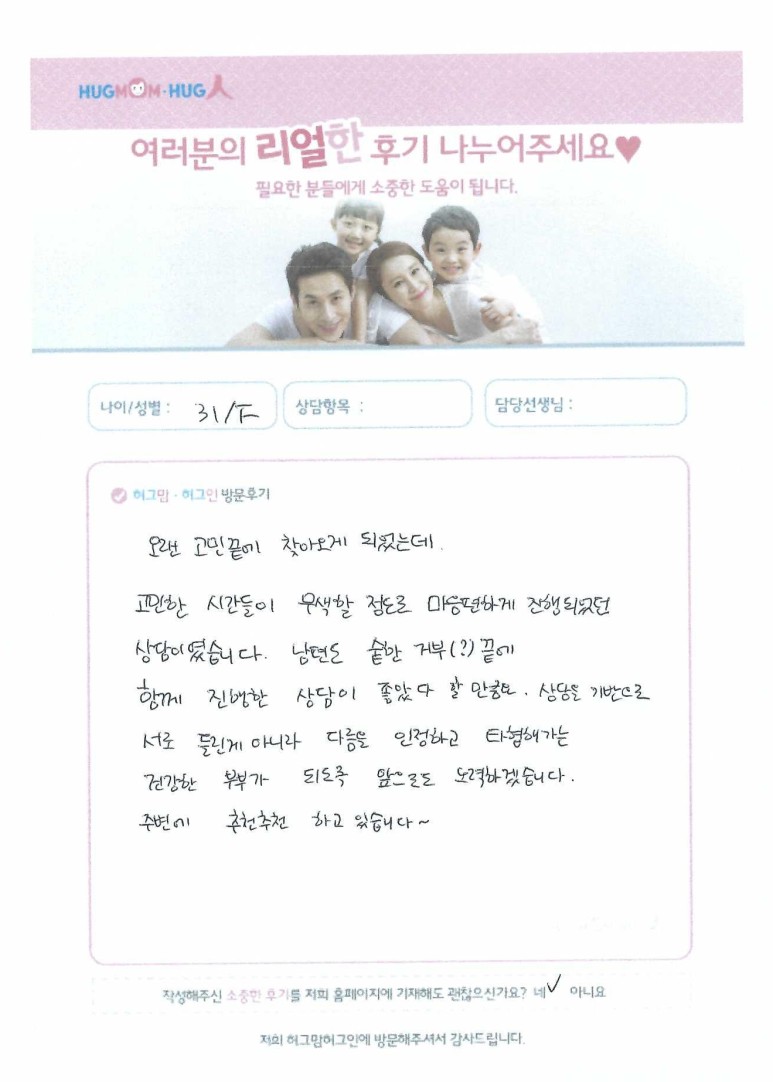 HUGMOM·HUG人
여러분의 리얼한 후기 나누어주세요♥
필요한 분들에게 소중한 도움이 됩니다.
나이/성별 : 31/F 상담항목 : 담당선생님 :
허그맘 · 허그인 방문후기
오랜 고민끝에 찾아오게 되었는데.
고민한 시간들이 무색할 정도로 마음편하게 진행되었던
상담이였습니다. 남편도 숱한 거부(?) 끝에
함께 진행한 상담이 좋았다 할 만큼요. 상담을 기반으로
서로 틀린게 아니라 다름을 인정하고 타협해가는
건강한 부부가 되도록 앞으로도 노력하겠습니다.
주변에 추천추천 하고 있습니다~
작성해주신 소중한 후기를 저희 홈페이지에 기재해도 괜찮으신가요? 네✓ 아니요
저희 허그맘허그인에 방문해주셔서 감사드립니다.